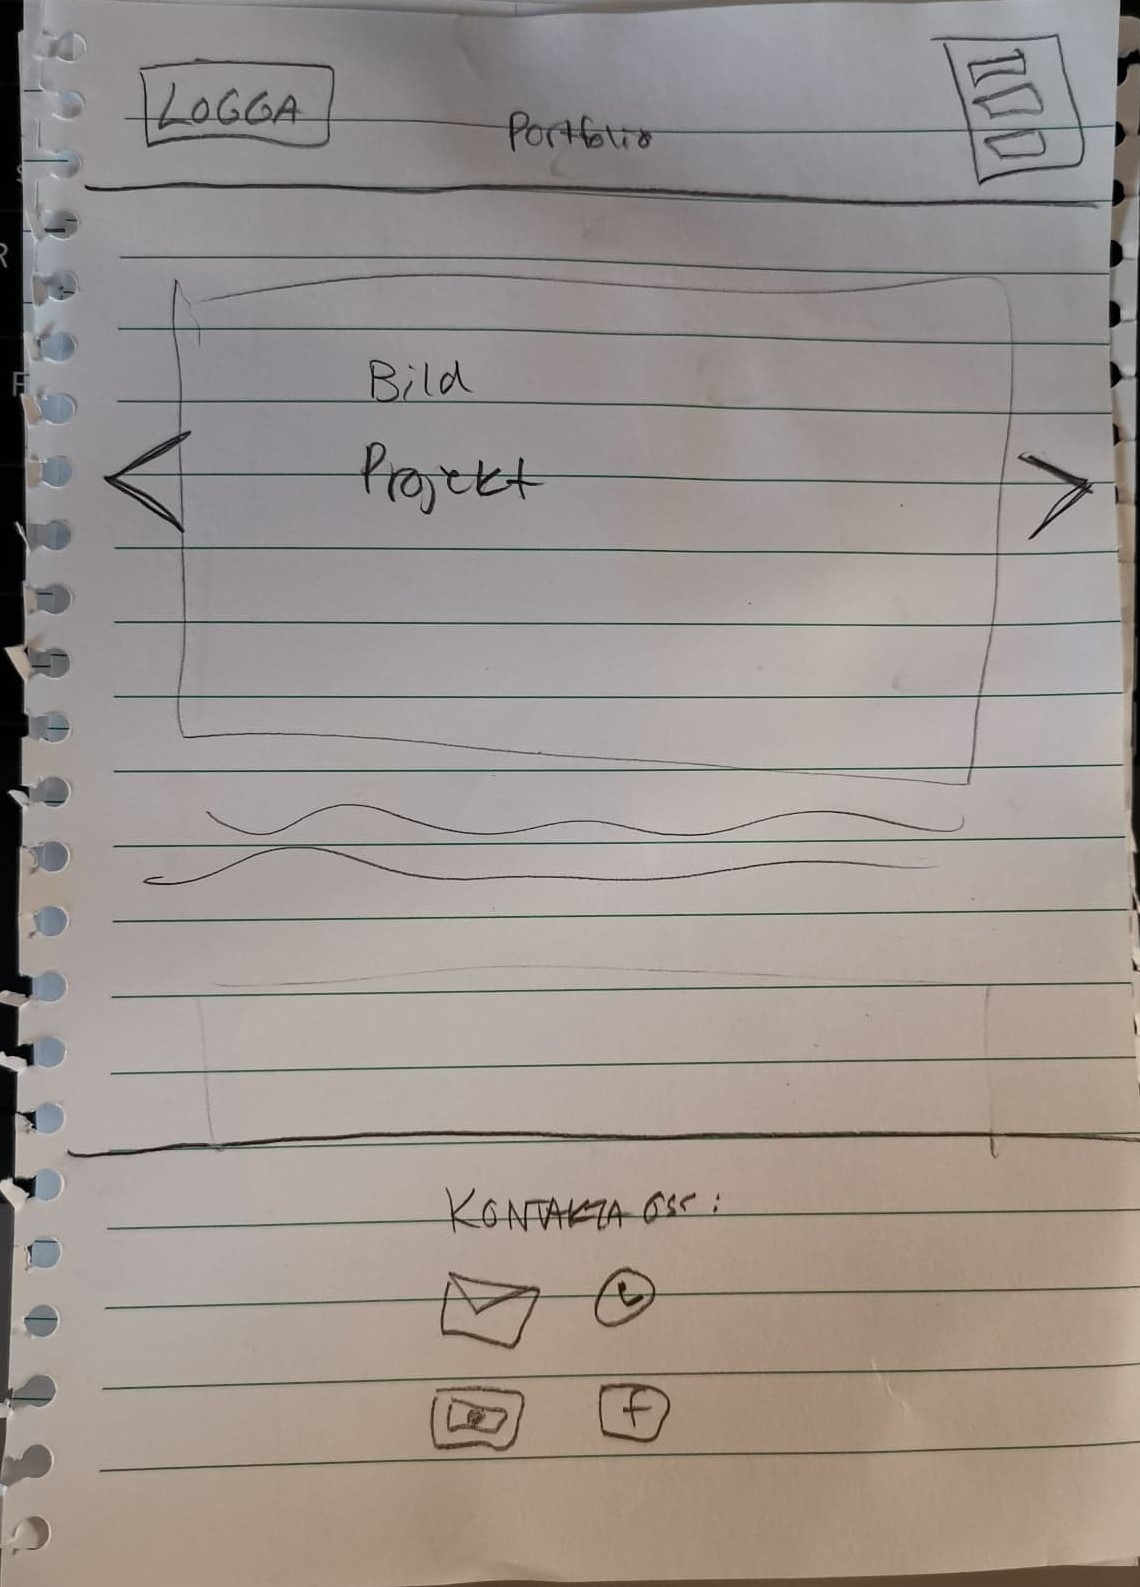 LOGGA
Portfolio
Bild
Projekt
<
>
KONTAKTA OSS:
f